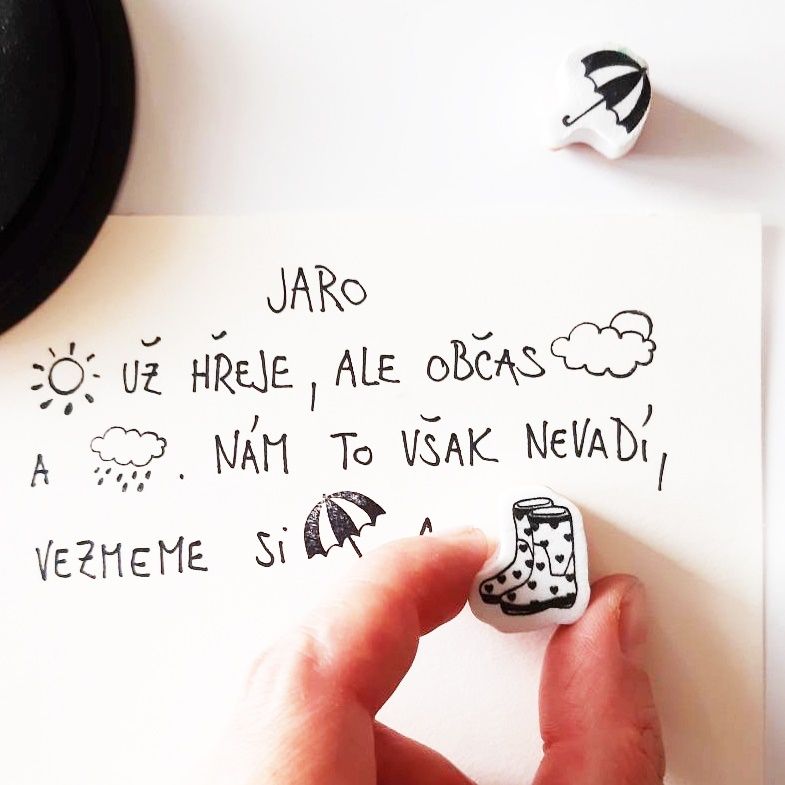 JARO
UŽ HŘEJE, ALE OBČAS
A . NÁM TO VŠAK NEVADÍ,
VEZMEME SI